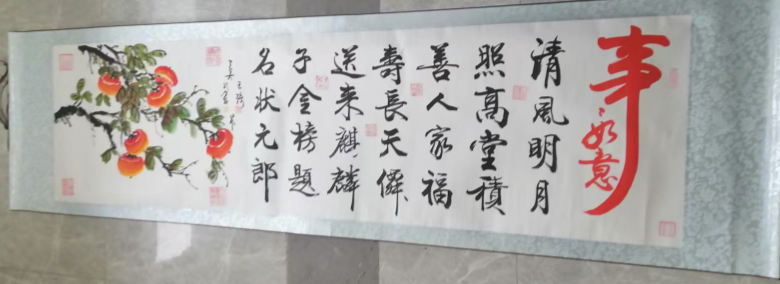 事事如意
清風明月
照高堂積
善人家福
壽長天僲
送来麒麟
子金榜題
名状元郎